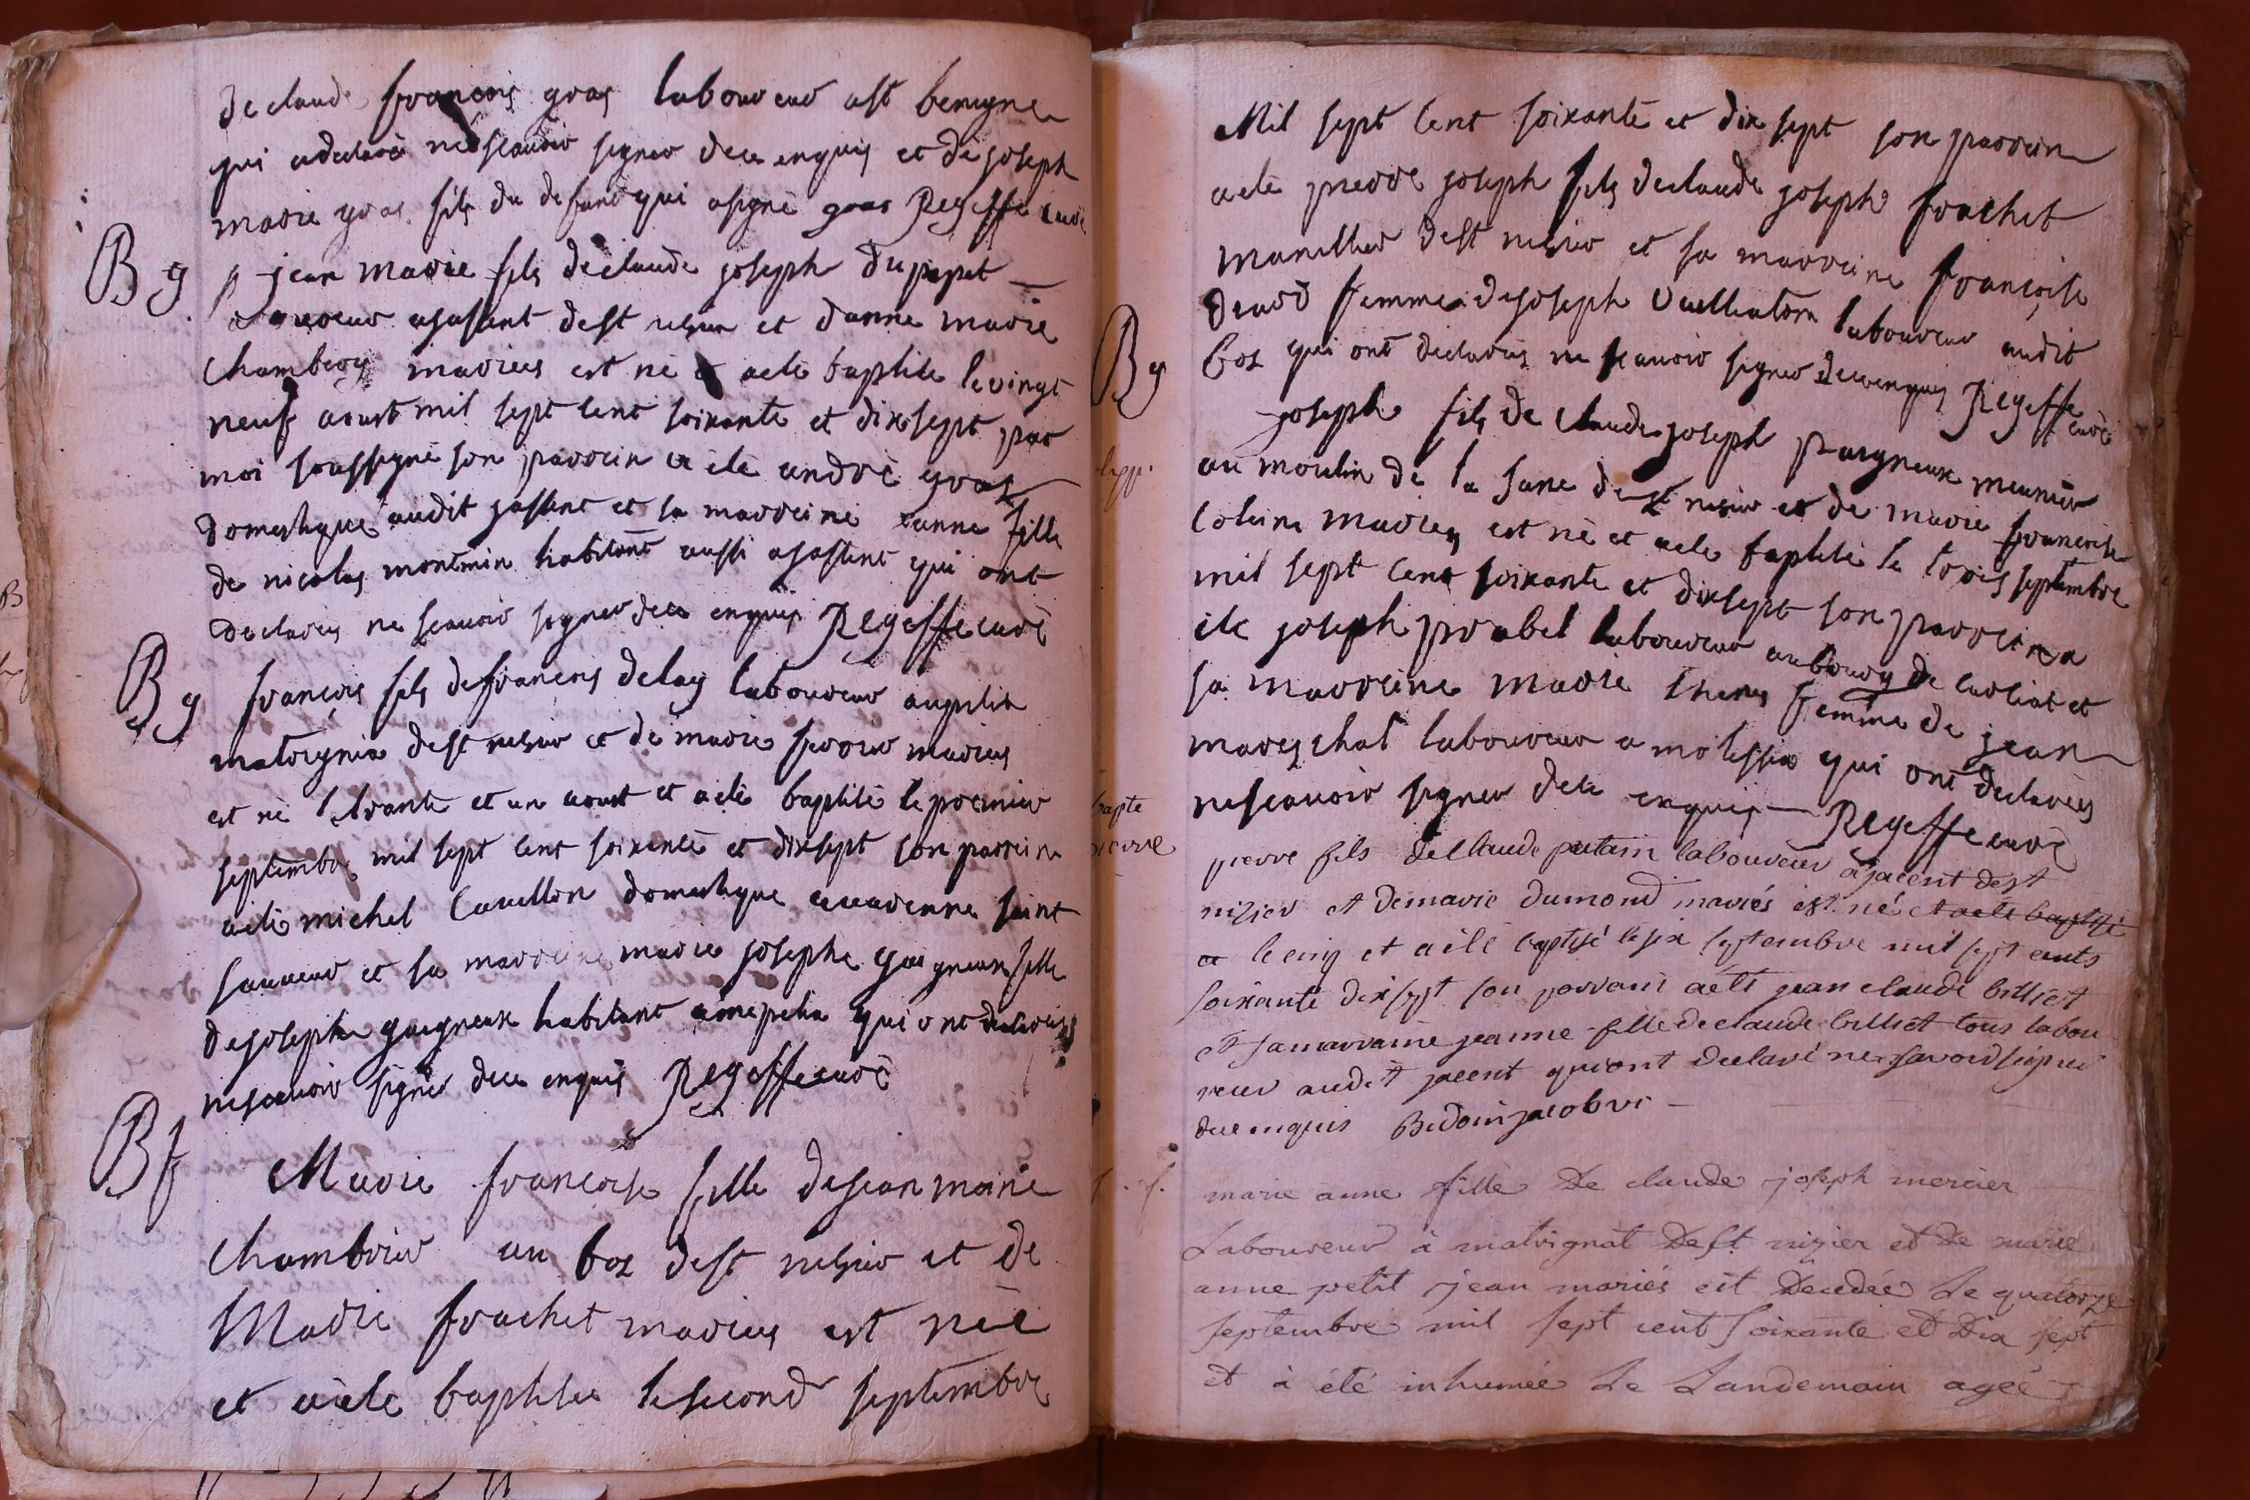 de claude françois gras laboureur a st benigne
qui a declaré ne scauoir signer de ce enquis et de joseph
marie gras fils du defunt qui a signé gras Regeffe curé
B g
jean marie fils de claude joseph dupupet
laboureur a jassent de st nesier et danne marie
Chamberoy mariees est né a eté baptisé le vingt
neuf aoust mil sept cent soixante et dix sept par
moi soussigné son parrein a été andré gras
domestique audit jassent et sa marreine anne fille
de nicolas montmin habitant aussi a jassent qui ont
declarés ne scauoir signer de ce enquis Regeffe curé
B g
françois fils de françois delay laboureur au petit
matrignia de st nesier et de marie ferour mariees
est né le trante et un aoust et a eté baptisé le premier
septembre mil sept cent soixante et dix sept son parrein
a eté michel Cauillon domestique a varenne saint
sauueur et sa marreine marie josephe guigneux fille
de joseph guigneux habitant qui ont declarés
ne scauoir signer de ce enquis Regeffe curé
B f
Marie françoise fille de jean marie
Chambrier au boz de st nesier et de
Marie frachet mariees est née
et a eté baptisée le second septembre
Mil sept cent soixante et dix sept son parrein
a eté pierre joseph fils de claude joseph frachet
manillier de st nesier et sa marreine françoise
femme de joseph Vuilliaton laboureur audit
boz qui ont declarés ne scauoir signer de ce enquis Regeffe curé
B g
joseph fils de claude joseph puigneux meunier
au moulin de la sane de st nesier et de marie francoise
Coleine mariees est né et a eté baptisé le trois septembre
mil sept cent soixante et dix sept son parrein a
été joseph probel laboureur au bourg de curciat et
sa marreine marie femme de jean
mareschal laboureur a molissia qui ont declarées
ne scauoir signer de ce enquis Regeffe curé
bapte
pierre
pierre fils de Claude putain laboureur a jacent de st
nizier et de marie dumond mariés est né et a eté baptisé
le cinq et a été baptisé le six septembre mil sept cents
soixante dix sept son parrain a été jean claude billiet
et sa marraine jeanne fille de claude billiet tous labou
reur audit jacent qui ont declaré ne savoir signer
de ce enquis Bidoin jacobus
marie anne fille De claude joseph mercier
Laboureur à matrignat De st nizier et de marie
anne petit jean mariés est Decedée Le quatorze
septembre mil sept cent soixante et Dix sept
et à été inhumée Le Landemain agée